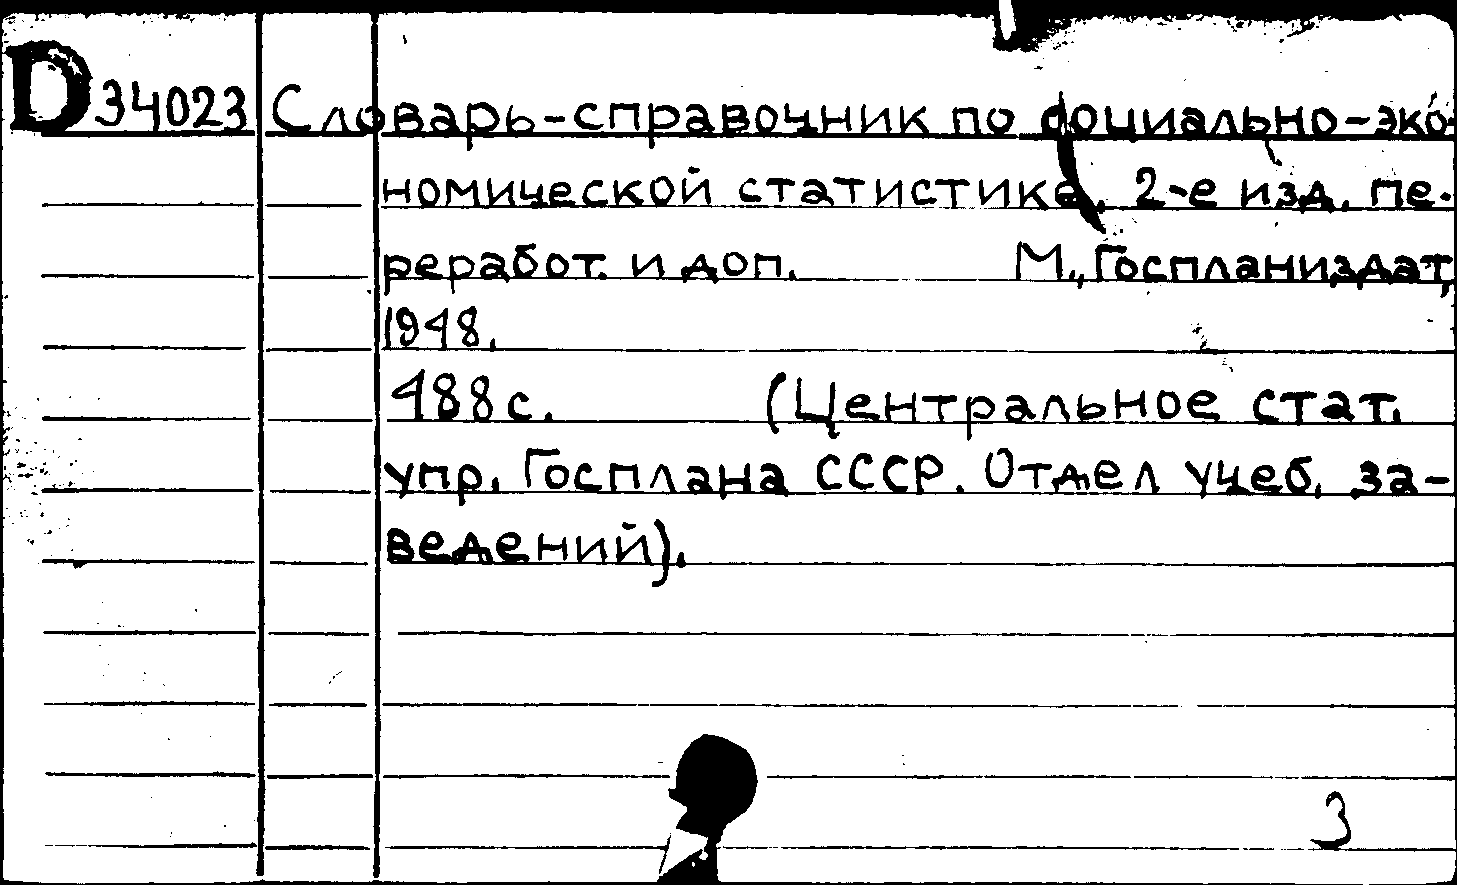 D34023 Словарь-справочник по социально-эко-
номической статистике. 2-е изд. пе-
реработ. и доп. М., Госпланиздат,
1948.
488 с. (Центральное стат.
упр. Госплана СССР. Отдел учеб. за-
ведений).
3